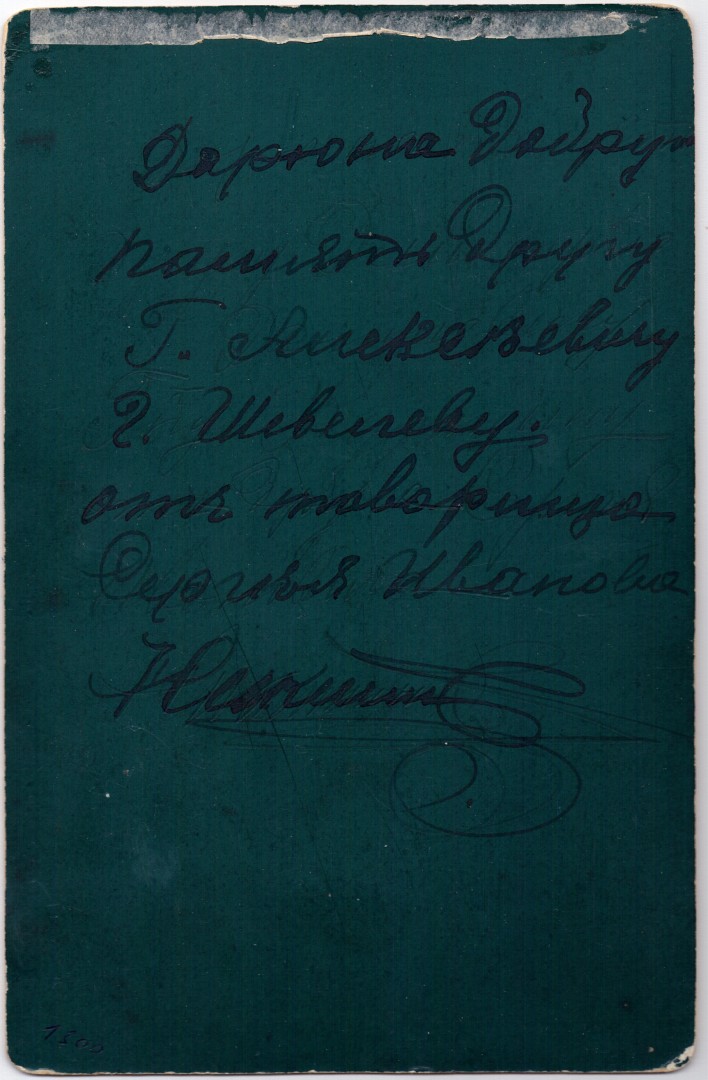 Дарюна Добрую
память Другу
Г. Алексѣевичу
Г. Шевелеву.
отъ товарища
Сергѣя Иванова
1500